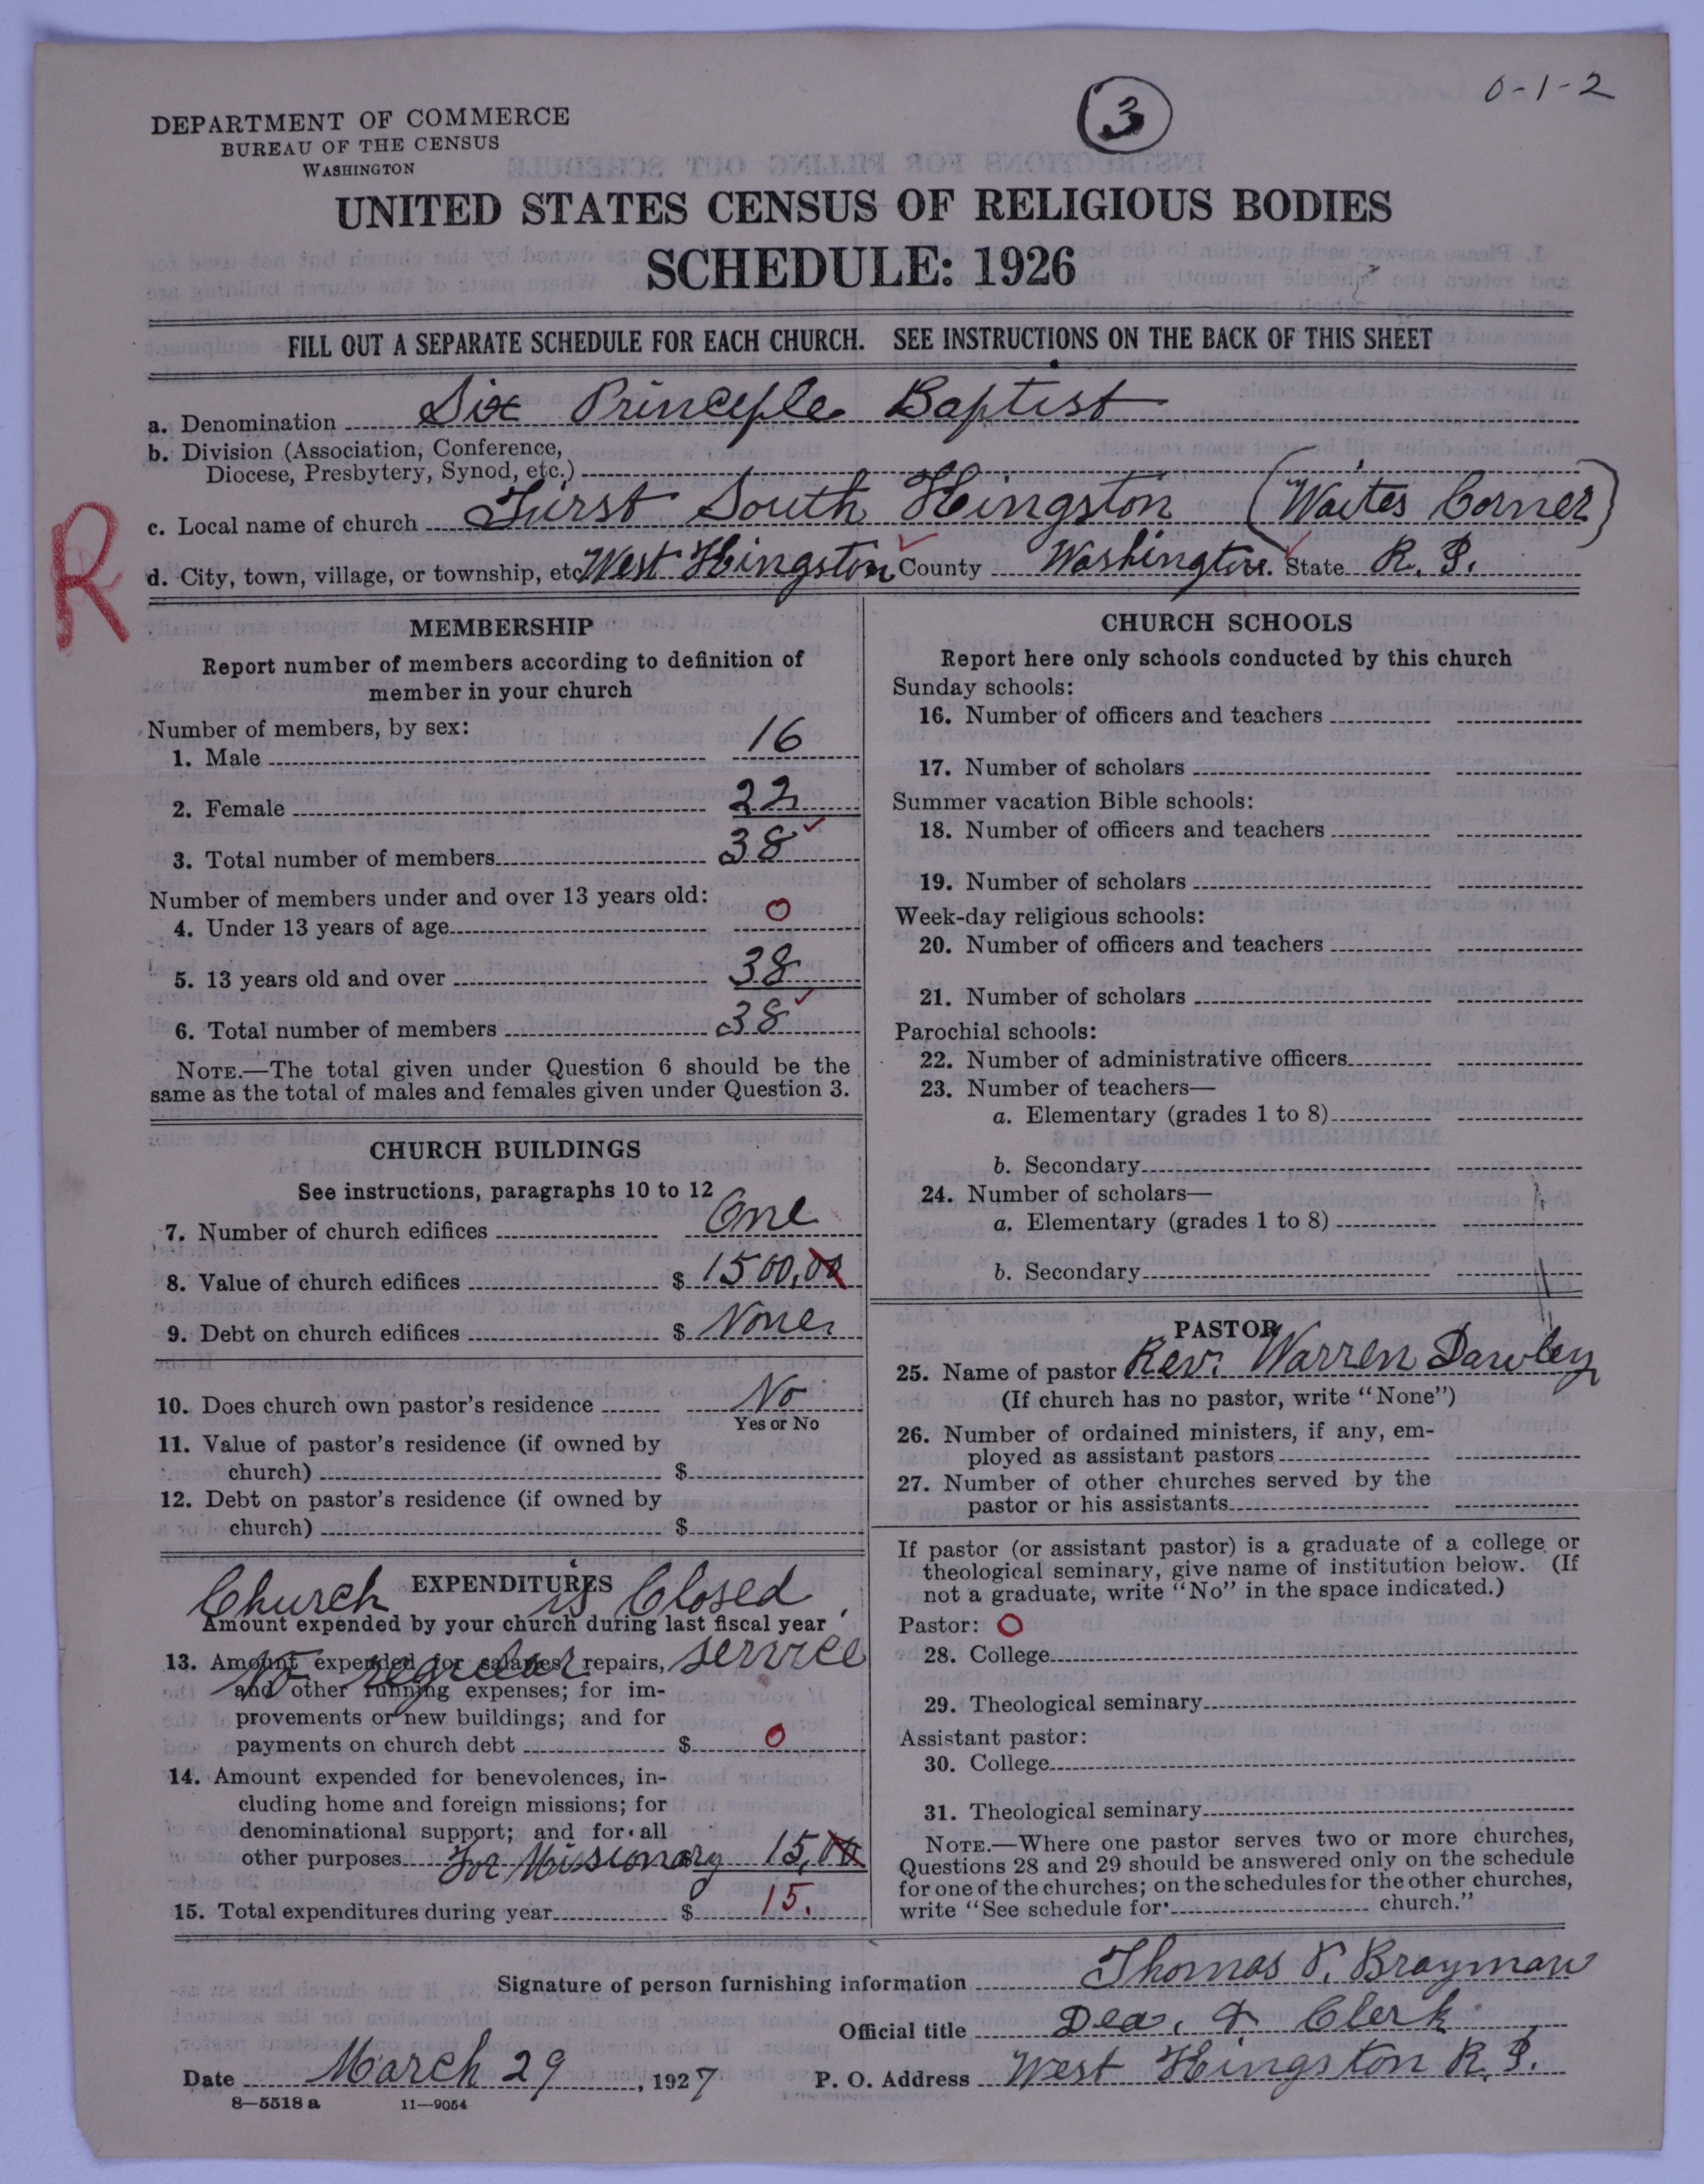 0-1-2
3
DEPARTMENT OF COMMERCE
BUREAU OF THE CENSUS
WASHINGTON
UNITED STATES CENSUS OF RELIGIOUS BODIES
SCHEDULE: 1926
FILL OUT A SEPARATE SCHEDULE FOR EACH CHURCH. SEE INSTRUCTIONS ON THE BACK OF THIS SHEET
a. Denomination Six Principle Baptist
b. Division (Association, Conference,
Diocese, Presbytery, Synod, etc.)
c. Local name of church First South Kingston (Waites Corner)
R
d. City, town, village, or township, etc West Kingston County Washington. State R. I.
MEMBERSHIP
Report number of members according to definition of
member in your church
Number of members, by sex:
1. Male 16
2. Female 22
3. Total number of members 38
Number of members under and over 13 years old:
4. Under 13 years of age 0
5. 13 years old and over 38
6. Total number of members 38
NOTE.—The total given under Question 6 should be the
same as the total of males and females given under Question 3.
CHURCH BUILDINGS
See instructions, paragraphs 10 to 12
7. Number of church edifices One
8. Value of church edifices $ 1500,00
9. Debt on church edifices $ None
10. Does church own pastor's residence No
Yes or No
11. Value of pastor's residence (if owned by
church) $
12. Debt on pastor's residence (if owned by
church) $
EXPENDITURES
Church is Closed
Amount expended by your church during last fiscal year
no regular service
13. Amount expended for salaries, repairs,
and other running expenses; for im-
provements or new buildings; and for
payments on church debt $ 0
14. Amount expended for benevolences, in-
cluding home and foreign missions; for
denominational support; and for all
other purposes For Missionary $ 15,00
15. Total expenditures during year $ 15.
CHURCH SCHOOLS
Report here only schools conducted by this church
Sunday schools:
16. Number of officers and teachers
17. Number of scholars
Summer vacation Bible schools:
18. Number of officers and teachers
19. Number of scholars
Week-day religious schools:
20. Number of officers and teachers
21. Number of scholars
Parochial schools:
22. Number of administrative officers
23. Number of teachers—
a. Elementary (grades 1 to 8)
b. Secondary
24. Number of scholars—
a. Elementary (grades 1 to 8)
b. Secondary
PASTOR
25. Name of pastor Rev. Warren Dawley
(If church has no pastor, write "None")
26. Number of ordained ministers, if any, em-
ployed as assistant pastors
27. Number of other churches served by the
pastor or his assistants
If pastor (or assistant pastor) is a graduate of a college or
theological seminary, give name of institution below. (If
not a graduate, write "No" in the space indicated.)
Pastor: 0
28. College
29. Theological seminary
Assistant pastor:
30. College
31. Theological seminary
NOTE.—Where one pastor serves two or more churches,
Questions 28 and 29 should be answered only on the schedule
for one of the churches; on the schedules for the other churches,
write "See schedule for church."
Signature of person furnishing information Thomas P. Brayman
Official title Dea. & Clerk
Date March 29, 1927 P. O. Address West Kingston R. I.
8—5518 a 11—9054